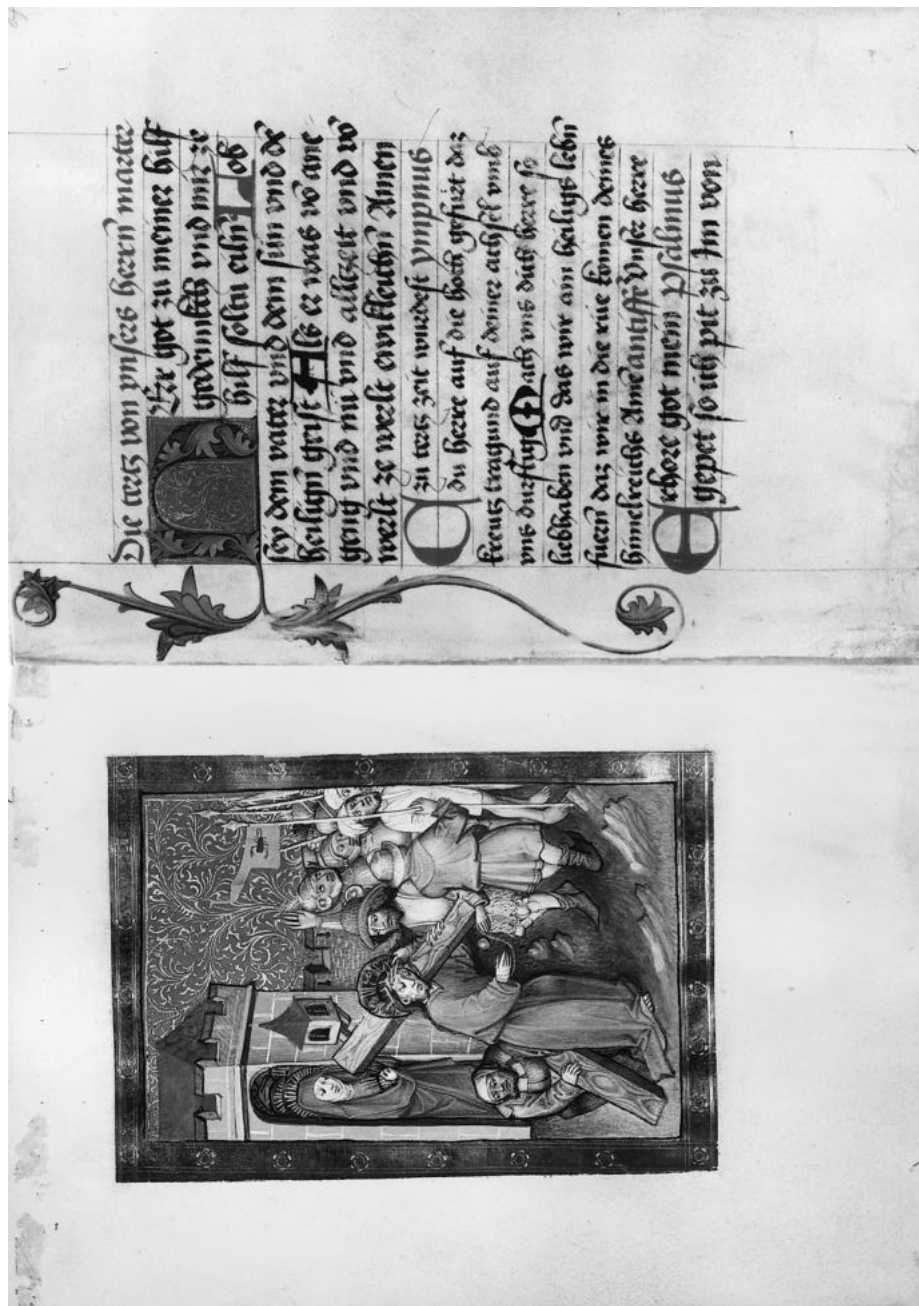 Die tertz von vnsers herren marter
Herre got zu meiner hilf
gedennkch vnd mir ze
hilf soltu eilen Lob
sey dem vater vnd dem sun vnd dē
heiligen geist Als er was vō ane
geng vnd nu vnd allezeit vnd vō
werlt ze werlt ewikleichn̄ Amen
zu tertz zeit wurdest ympnus
du herre auf die hoch gefürt daz
kreutz tragund auf deiner achsel vmb
vns durftig Mach vns dich herre so
liebhaben vnd das wir ain heiligs lebn̄
fuern daz wir in die rue komen deines
himelreichs Amē antiffē Vnser herre
Erhore got mein psalmus
gepet so ich pit zu Im von